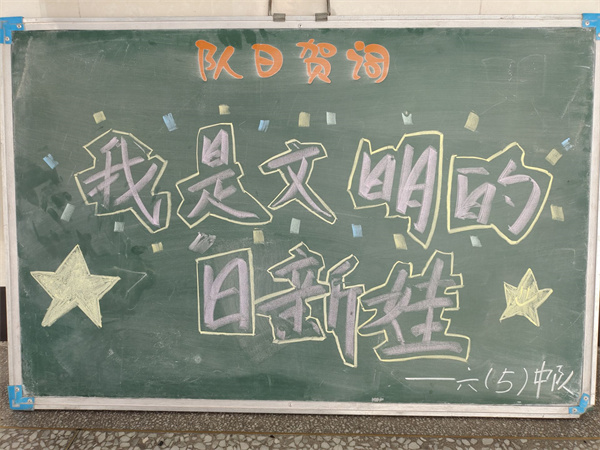 队日贺词
我是文明的
日新娃
——六(5)中队